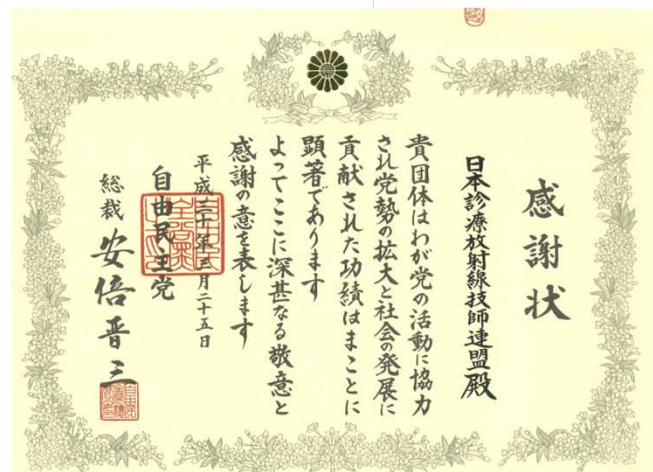 感謝状
日本診療放射線技師連盟殿
貴団体はわが党の活動に協力
され党勢の拡大と社会の発展に
貢献された功績はまことに
顕著であります
よってここに深甚なる敬意と
感謝の意を表します
平成三十年三月二十五日
自由民主党
総裁 安倍晋三